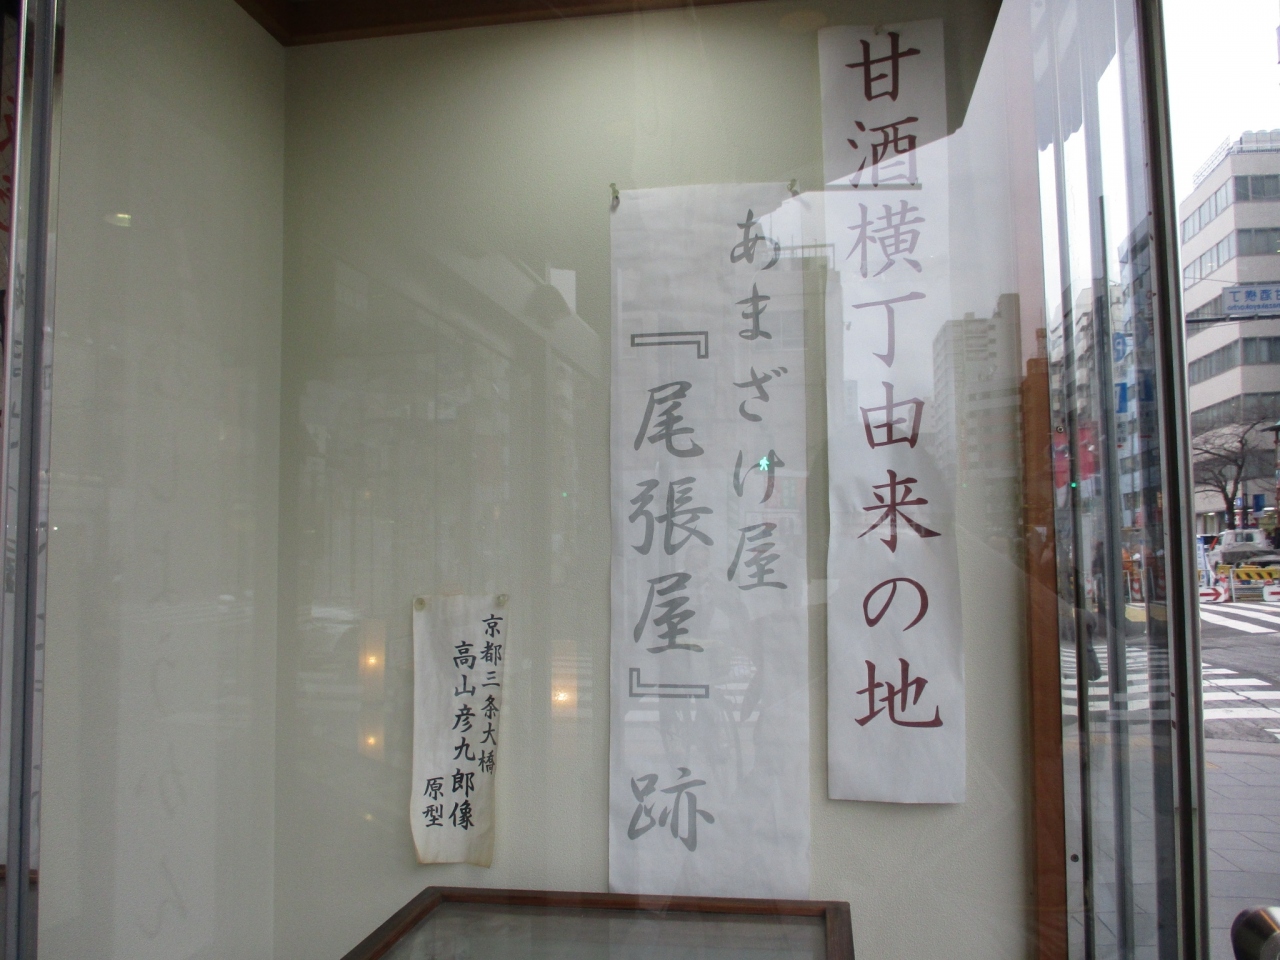 甘酒横丁由来の地
あまざけ屋
『尾張屋』跡
京都三条大橋
高山彦九郎像
原型